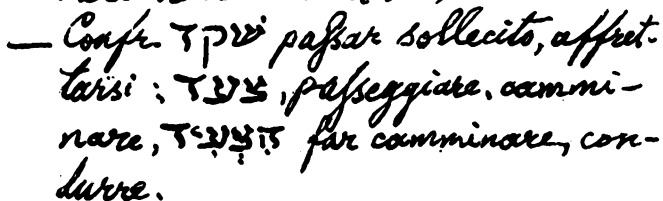 — Confr. שׁקד paſsar sollecito, affret-
tarsi ; צעד, paſseggiare, cammi-
nare, הִצְעִיד far camminare, con-
durre.